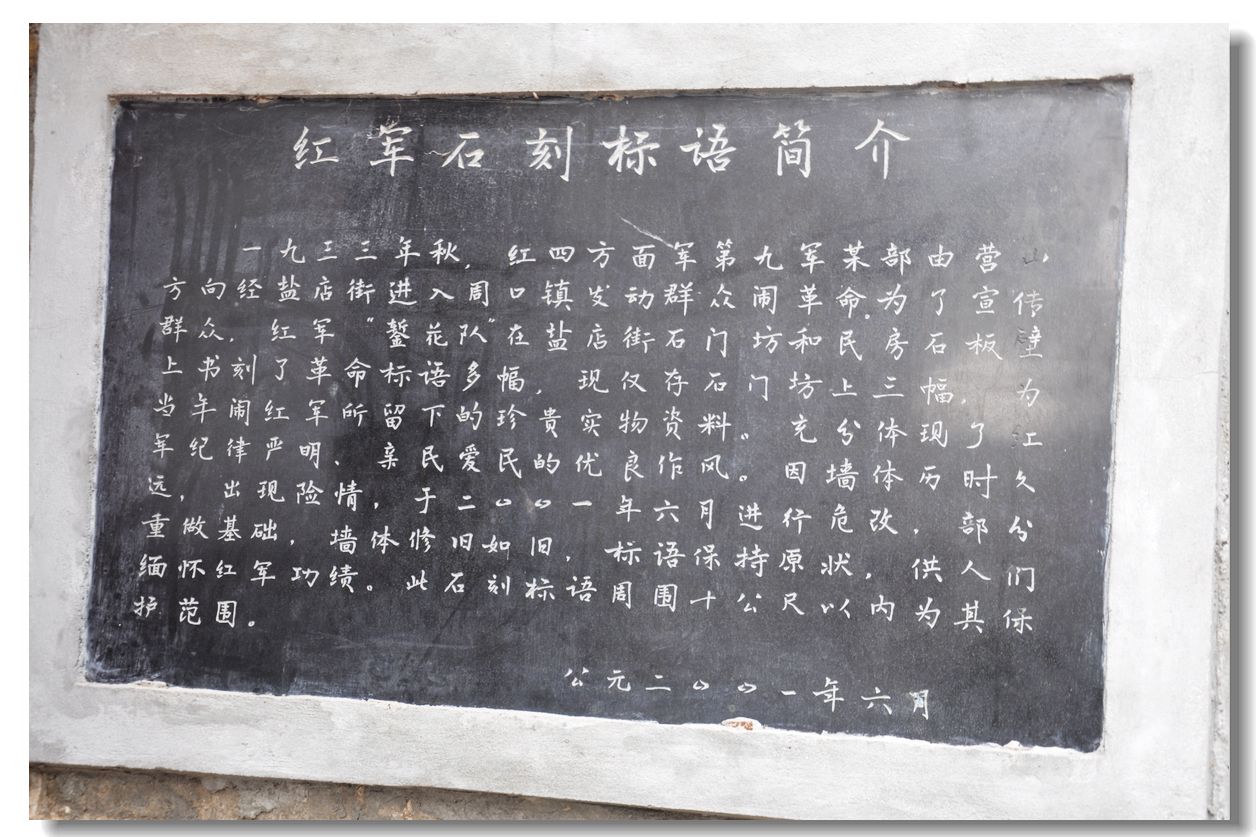 红军石刻标语简介
一九三三年秋,红四方面军第九军某部由营山
方向经盐店街进入周口镇发动群众闹革命。为了宣传
群众,红军"錾花队"在盐店街石门坊和民房石板壁
上书刻了革命标语多幅,现仅存石门坊上三幅,为
当年闹红军所留下的珍贵实物资料。充分体现了红
军纪律严明、亲民爱民的优良作风。因墙体历时久
远,出现险情,于二〇〇一年六月进行危改,部分
重做基础,墙体修旧如旧,标语保持原状,供人们
缅怀红军功绩。此石刻标语周围十公尺以内为其保
护范围。
公元二〇〇一年六月